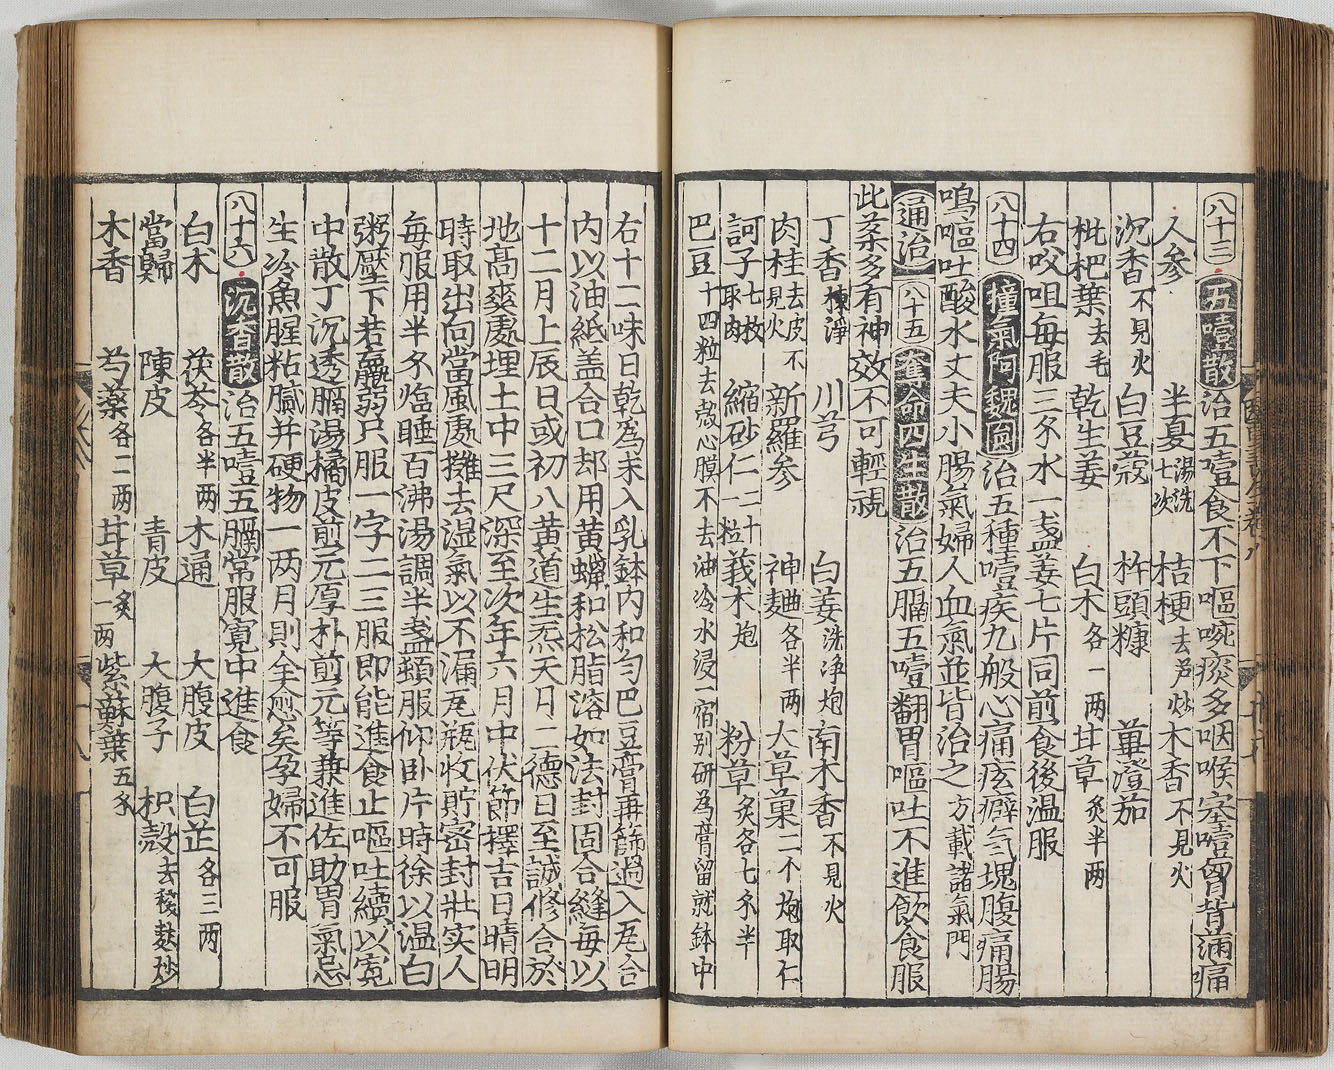 八十三 五噎散 治五噎食不下嘔啘痰多咽喉塞噎胷背滿痛
人參 半夏湯洗七次 桔梗去芦炒 木香不見火
沉香不見火 白豆蔻 杵頭糠 蓽澄茄
枇杷葉去毛 乾生姜 白术各一两 甘草炙半两
右咬咀每服三錢水一盞姜七片同前食後温服
八十四 撞氣阿魏圓 治五種噎疾九般心痛痃癖气塊腹痛腸
鳴嘔吐酸水丈夫小腸氣婦人血氣並皆治之方載諸氣門
通治 八十五 奪命四生散 治五膈五噎翻胃嘔吐不進飲食服
此藥多有神效不可輕視
丁香揀淨 川芎 白姜洗净炮 南木香不見火
肉桂去皮不見火 新羅參 神麯各半两 大草菓二个炮取仁
訶子七枚取肉 縮砂仁二十一粒 莪术炮 粉草炙各七錢半
巴豆十四粒去殼心膜不去油冷水浸一宿别研為膏留就鉢中
右十二味日乾為末入乳鉢内和勻巴豆膏再篩過入瓦合
内以油紙盖合口却用黄蠟和松脂溶如法封固合縫每以
十二月上辰日或初八黄道生炁天月二德日至誠修合於
地髙爽處埋土中三尺深至次年六月中伏節擇吉日晴明
時取出向當風處攤去湿氣以不漏瓦瓶收貯密封壯实人
每服用半錢临睡百沸湯調半盞頻服仰卧片時徐以温白
粥壓下若羸弱只服一字二三服即能進食止嘔吐續以寛
中散丁沉透膈湯橘皮煎元厚朴煎元等兼進佐助胃氣忌
生冷魚腥粘膩并硬物一两月則全愈矣孕婦不可服
八十六 沉香散 治五噎五膈常服寛中進食
白术 茯苓各半两 木通 大腹皮 白芷各三两
當歸 陳皮 青皮 大腹子 枳殼去穰麩炒
木香 芍藥各二两 甘草一两炙 紫蘇葉五錢